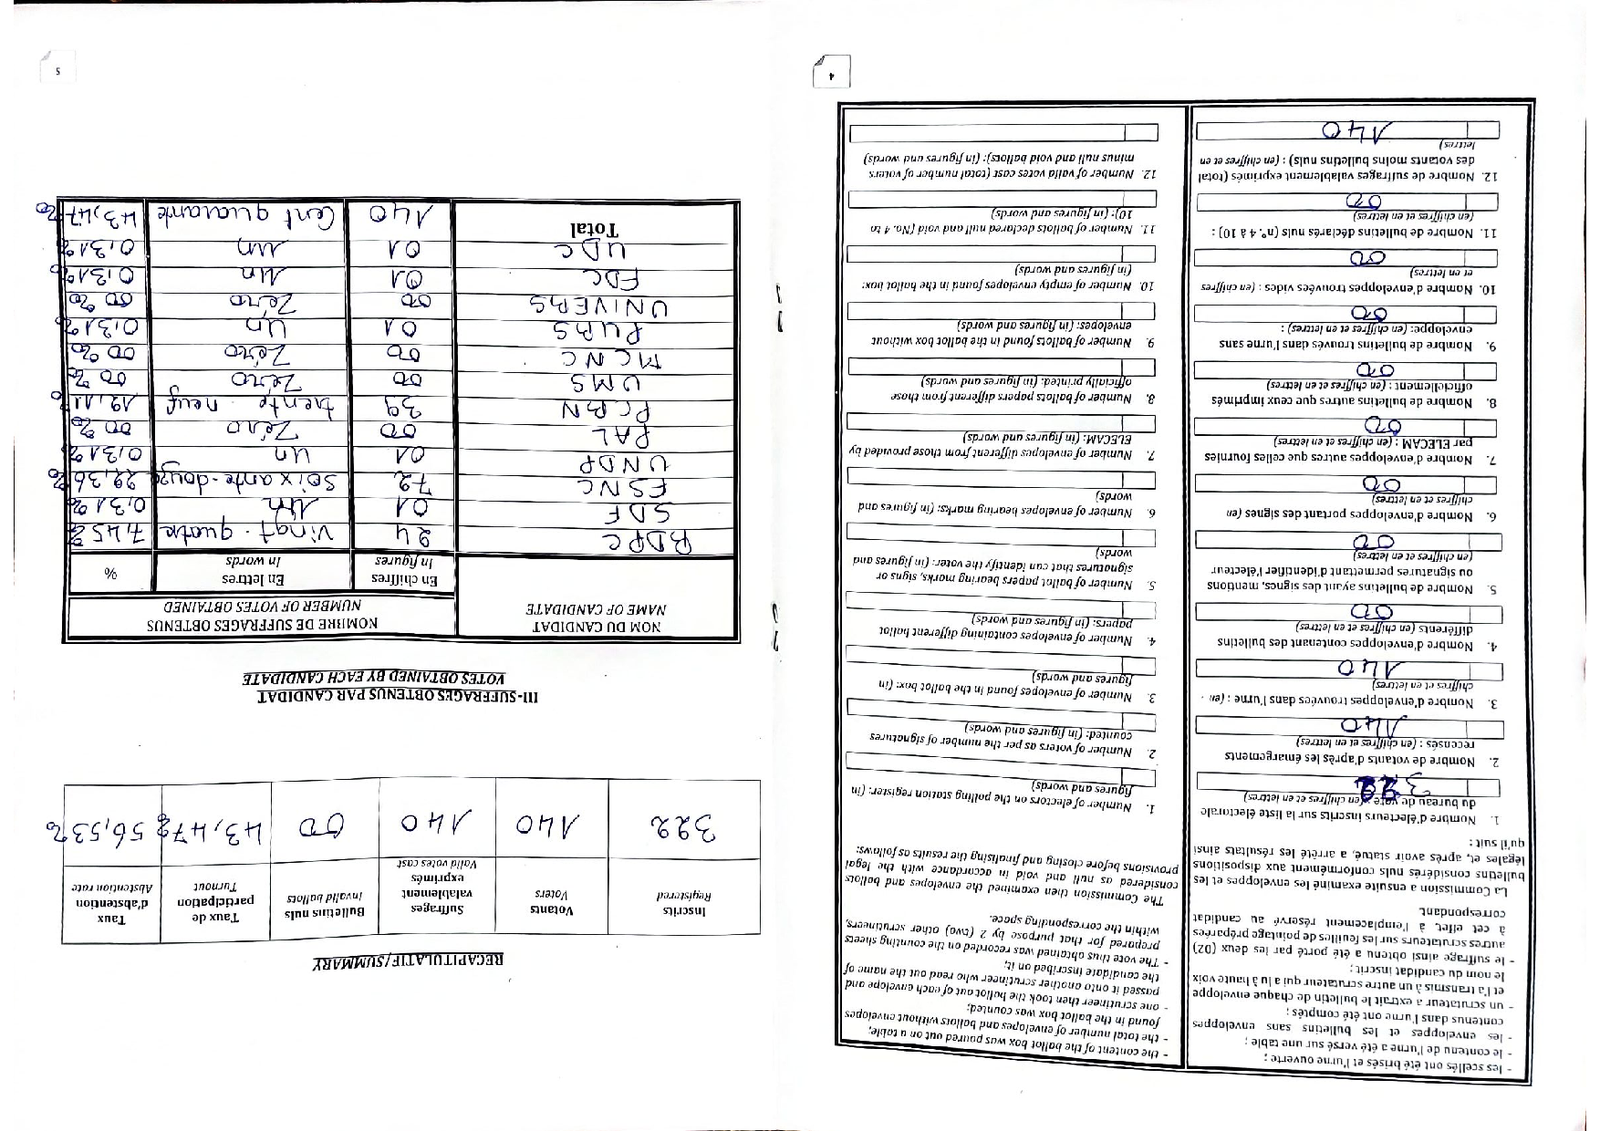 - les scellés ont été brisés et l'urne ouverte ;
- le contenu de l'urne a été versé sur une table ;
- les enveloppes et les bulletins sans enveloppes
contenus dans l'urne ont été comptés ;
- un scrutateur a extrait le bulletin de chaque enveloppe
et l'a transmis à un autre scrutateur qui a lu à haute voix
le nom du candidat inscrit ;
- le suffrage ainsi obtenu a été porté par les deux (02)
autres scrutateurs sur les feuilles de pointage préparées
à cet effet, à l'emplacement réservé au candidat
correspondant.
La Commission a ensuite examiné les enveloppes et les
bulletins considérés nuls conformément aux dispositions
légales et, après avoir statué, a arrêté les résultats ainsi
qu'il suit :
1. Nombre d'électeurs inscrits sur la liste électorale
du bureau de vote (en chiffres et en lettres)
322
2. Nombre de votants d'après les émargements
recensés : (en chiffres et en lettres)
140
3. Nombre d'enveloppes trouvées dans l'urne : (en
chiffres et en lettres)
140
4. Nombre d'enveloppes contenant des bulletins
différents (en chiffres et en lettres)
00
5. Nombre de bulletins ayant des signes, mentions
ou signatures permettant d'identifier l'électeur
(en chiffres et en lettres)
00
6. Nombre d'enveloppes portant des signes (en
chiffres et en lettres)
00
7. Nombre d'enveloppes autres que celles fournies
par ELECAM : (en chiffres et en lettres)
00
8. Nombre de bulletins autres que ceux imprimés
officiellement : (en chiffres et en lettres)
00
9. Nombre de bulletins trouvés dans l'urne sans
enveloppe: (en chiffres et en lettres) :
00
10. Nombre d'enveloppes trouvées vides : (en chiffres
et en lettres)
00
11. Nombre de bulletins déclarés nuls (n°. 4 à 10) :
(en chiffres et en lettres)
00
12. Nombre de suffrages valablement exprimés (total
des votants moins bulletins nuls) : (en chiffres et en
lettres)
140
- the content of the ballot box was poured out on a table;
- the total number of envelopes and ballots without envelopes
found in the ballot box was counted;
- one scrutineer then took the ballot out of each envelope and
passed it onto another scrutineer who read out the name of
the candidate inscribed on it;
- The vote thus obtained was recorded on the counting sheets
prepared for that purpose by 2 (two) other scrutineers,
within the corresponding space.
The Commission then examined the envelopes and the ballots
considered as null and void in accordance with the legal
provisions before closing and finalising the results as follows:
1. Number of electors on the polling station register: (in
figures and words)
2. Number of voters as per the number of signatures
counted: (in figures and words)
3. Number of envelopes found in the ballot box: (in
figures and words)
4. Number of envelopes containing different ballot
papers: (in figures and words)
5. Number of ballot papers bearing marks, signs or
signatures that can identify the voter: (in figures and
words)
6. Number of envelopes bearing marks: (in figures and
words)
7. Number of envelopes different from those provided by
ELECAM: (in figures and words)
8. Number of ballots papers different from those
officially printed: (in figures and words)
9. Number of ballots found in the ballot box without
envelopes: (in figures and words)
10. Number of empty envelopes found in the ballot box:
(in figures and words)
11. Number of ballots declared null and void (No. 4 to
10): (in figures and words)
12. Number of valid votes cast (total number of voters
minus null and void ballots): (in figures and words)
4
RECAPITULATIF/SUMMARY
Inscrits Registered | Votants Voters | Suffrages valablement exprimés Valid votes cast | Bulletins nuls Invalid ballots | Taux de participation Turnout | Taux d'abstention Abstention rate
322 | 140 | 140 | 00 | 43,47% | 56,53%
III-SUFFRAGES OBTENUS PAR CANDIDAT
VOTES OBTAINED BY EACH CANDIDATE
NOM DU CANDIDAT NAME OF CANDIDATE | NOMBRE DE SUFFRAGES OBTENUS NUMBER OF VOTES OBTAINED
En chiffres In figures | En lettres In words | %
RDPC | 24 | Vingt-quatre | 7,45%
SDF | 01 | Un | 0,31%
FSNC | 72 | Soixante-douze | 22,36%
UNDP | 01 | Un | 0,31%
PAL | 00 | Zéro | 00%
PCRN | 39 | trente-neuf | 12,11%
UMS | 00 | Zéro | 00%
MCNC | 00 | Zéro | 00%
PURS | 01 | Un | 0,31%
UNIVERS | 00 | Zéro | 00%
FDC | 01 | Un | 0,31%
UDC | 01 | Un | 0,31%
Total | 140 | Cent quarante | 43,47%
5